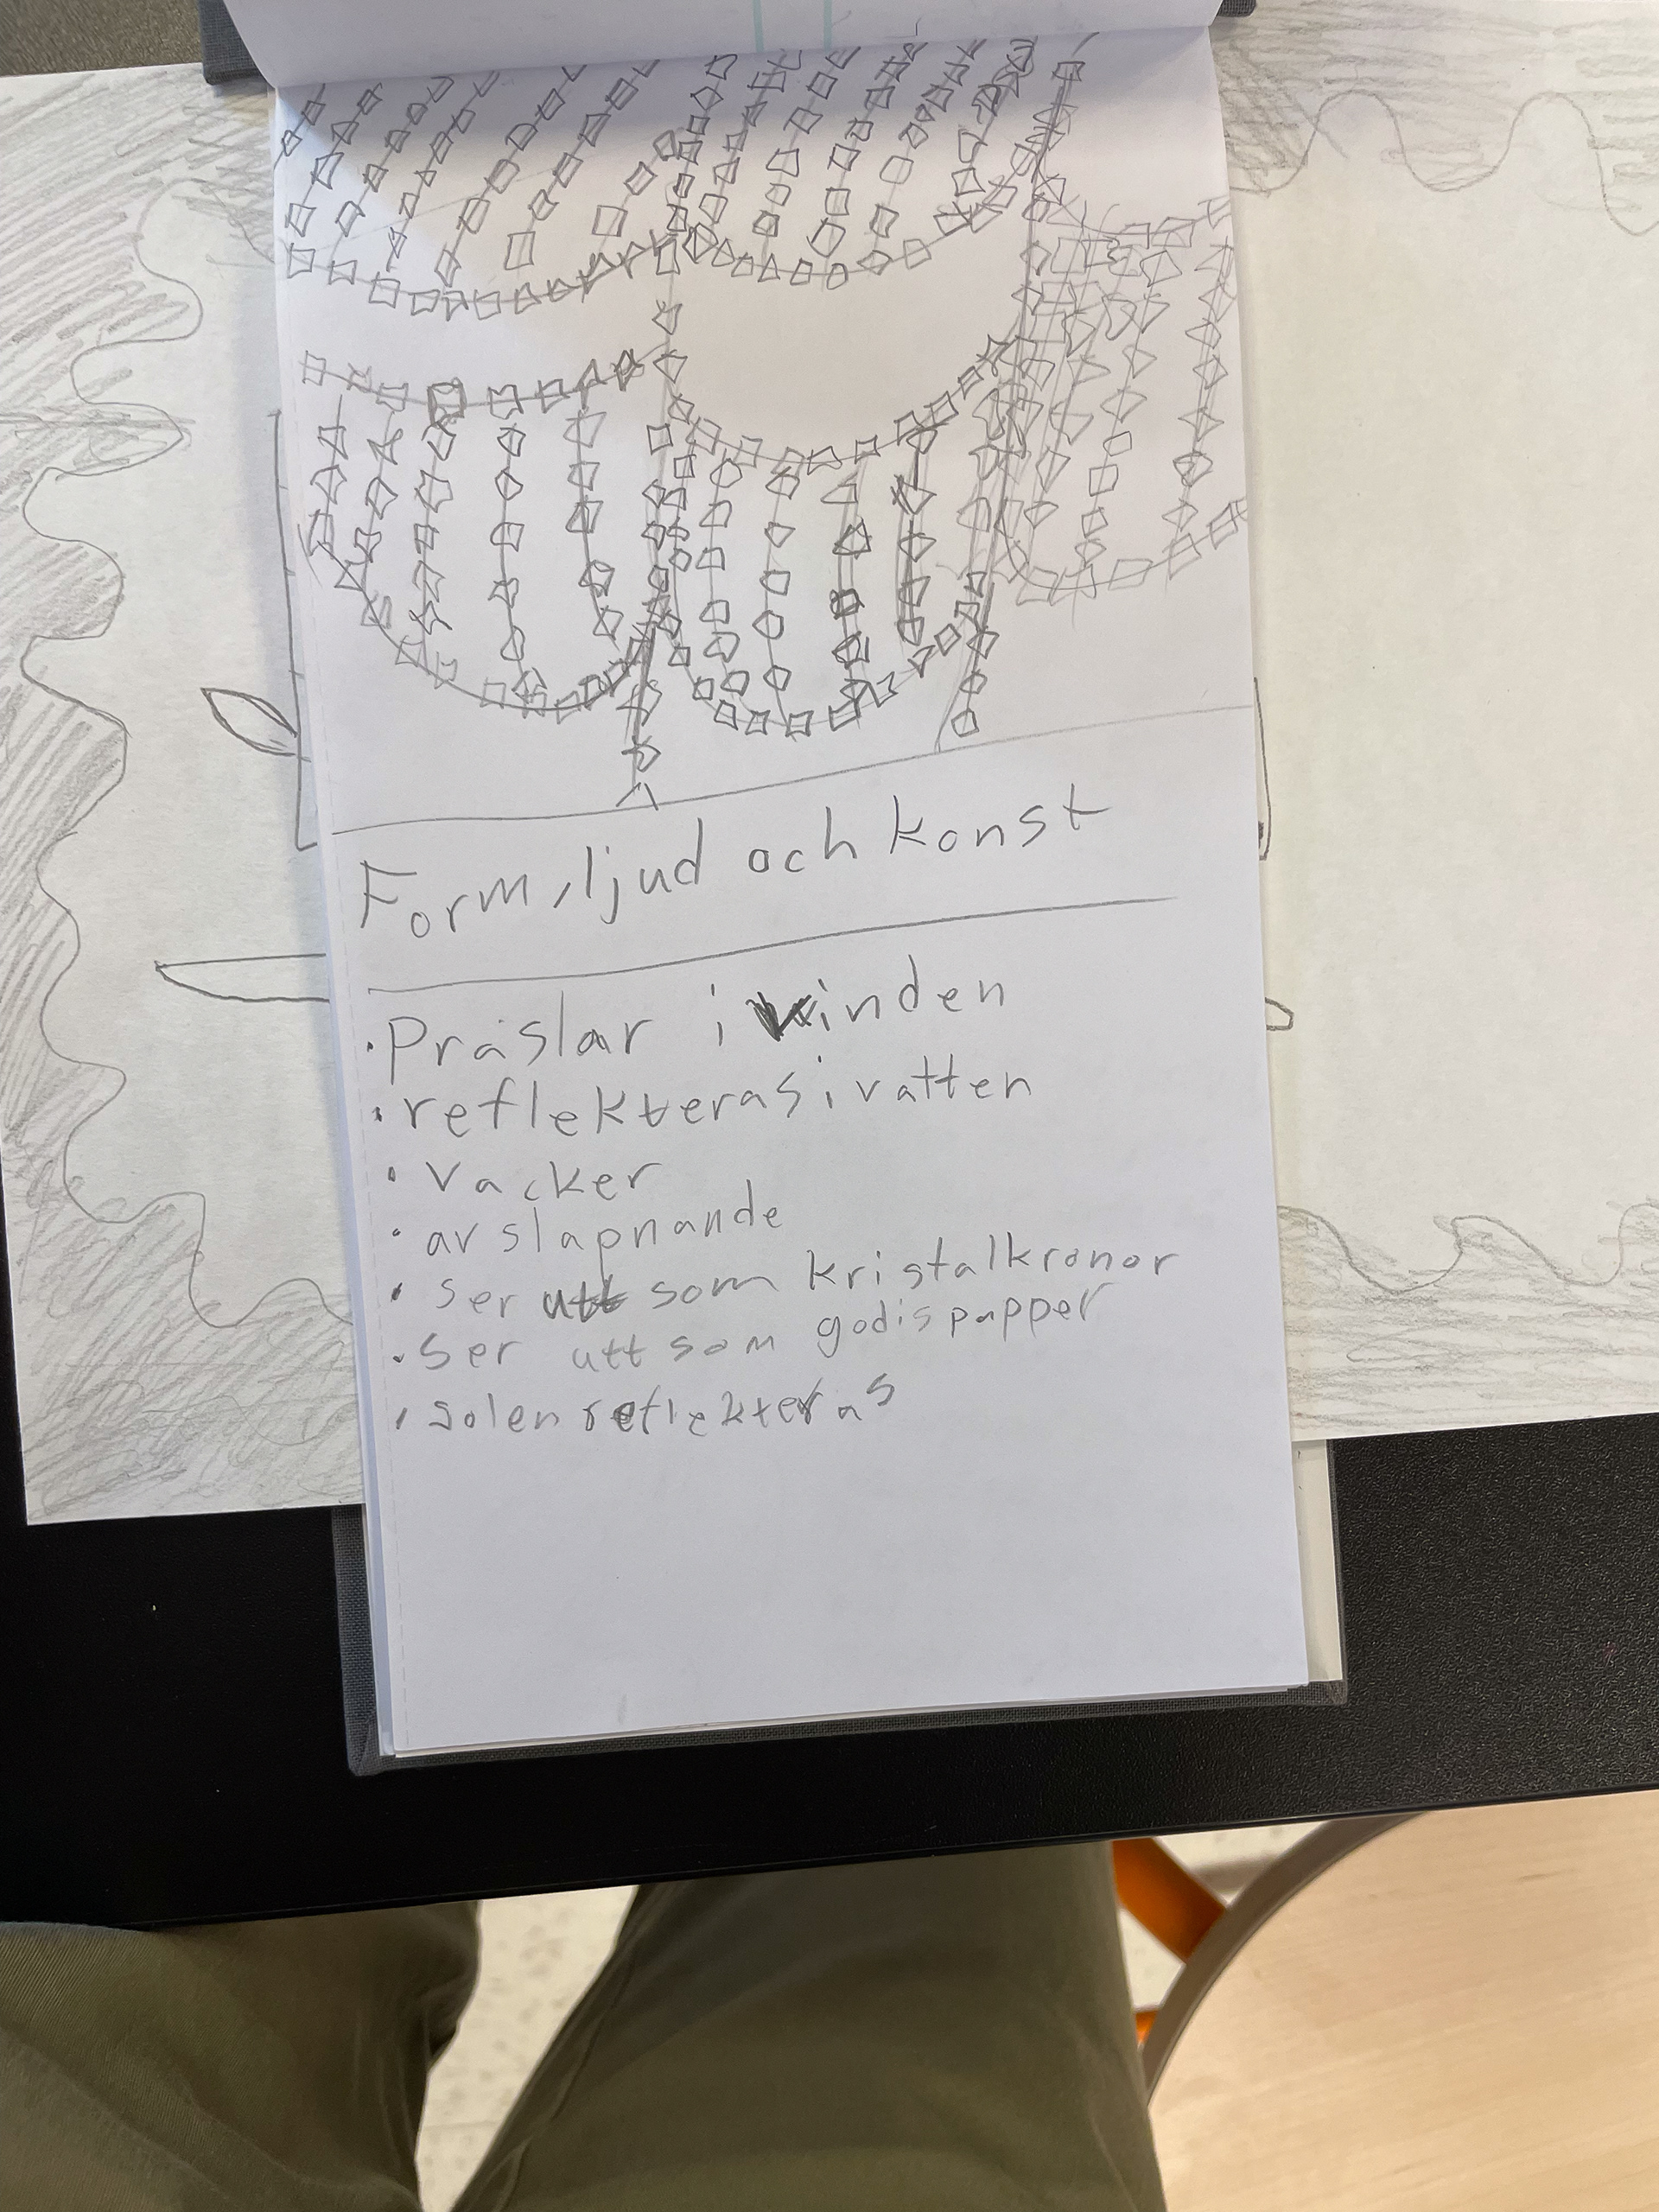 Form, ljud och konst
• Präslar i vinden
• reflekteras i vatten
• vacker
• avslapnande
• ser utt som kristalkronor
• ser utt som godispapper
• solen reflekteras